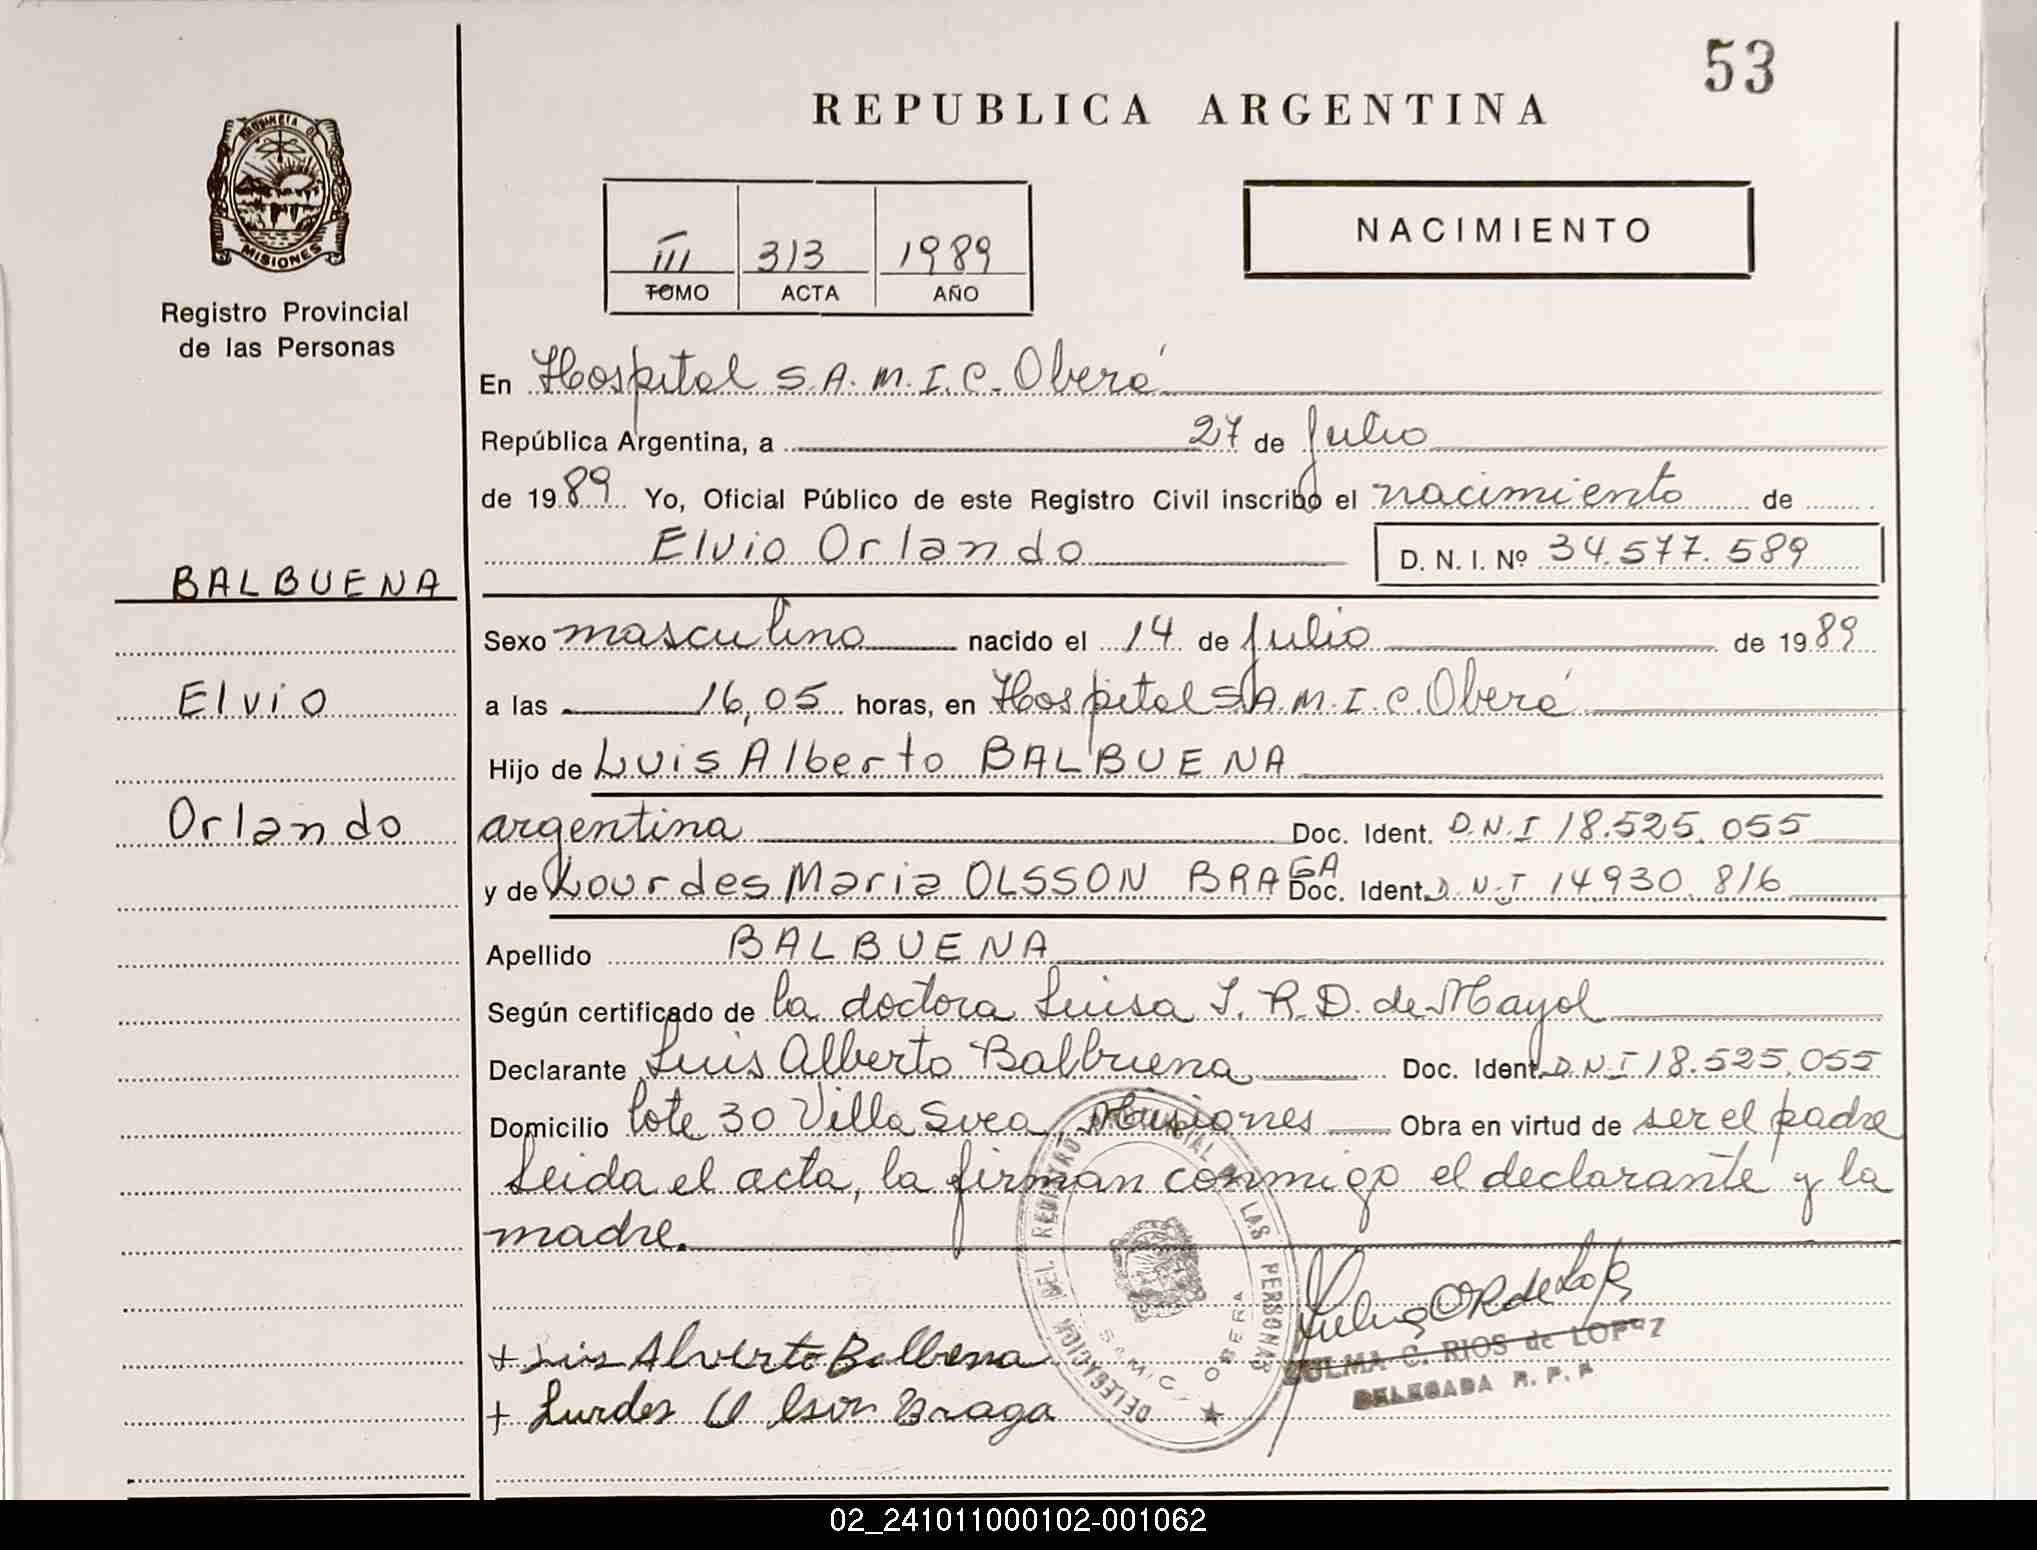 53
REPUBLICA ARGENTINA
PROVINCIA DE
MISIONES
Registro Provincial
de las Personas
III 313 1989
TOMO ACTA AÑO
NACIMIENTO
En Hospital S.A.M.I.C. Oberá
República Argentina, a 27 de Julio
de 1989 Yo, Oficial Público de este Registro Civil inscribo el nacimiento de
Elvio Orlando D. N. I. Nº 34.577.589
BALBUENA
Elvio
Orlando
Sexo masculino nacido el 14 de Julio de 1989
a las 16,05 horas, en Hospital S.A.M.I.C. Oberá
Hijo de Luis Alberto BALBUENA
argentina Doc. Ident. D.N.I 18.525.055
y de Lourdes Maria OLSSON BRAGA Doc. Ident. D.N.I 14930.816
Apellido BALBUENA
Según certificado de la doctora Luisa I. R.D. de Mayol
Declarante Luis Alberto Balbuena Doc. Ident. D.N.I 18.525.055
Domicilio lote 30 Villa Svea Misiones Obra en virtud de ser el padre
Leida el acta, la firman conmigo el declarante y la
madre.
DELEGACION DEL REGISTRO PROVINCIAL DE LAS PERSONAS
S.A.M.I.C. OBERA
+ Luis Alverto Balbena
+ Lurdes Olson Braga
ZULMA C. RIOS de LOPEZ
DELEGADA R. P. P.
02_241011000102-001062